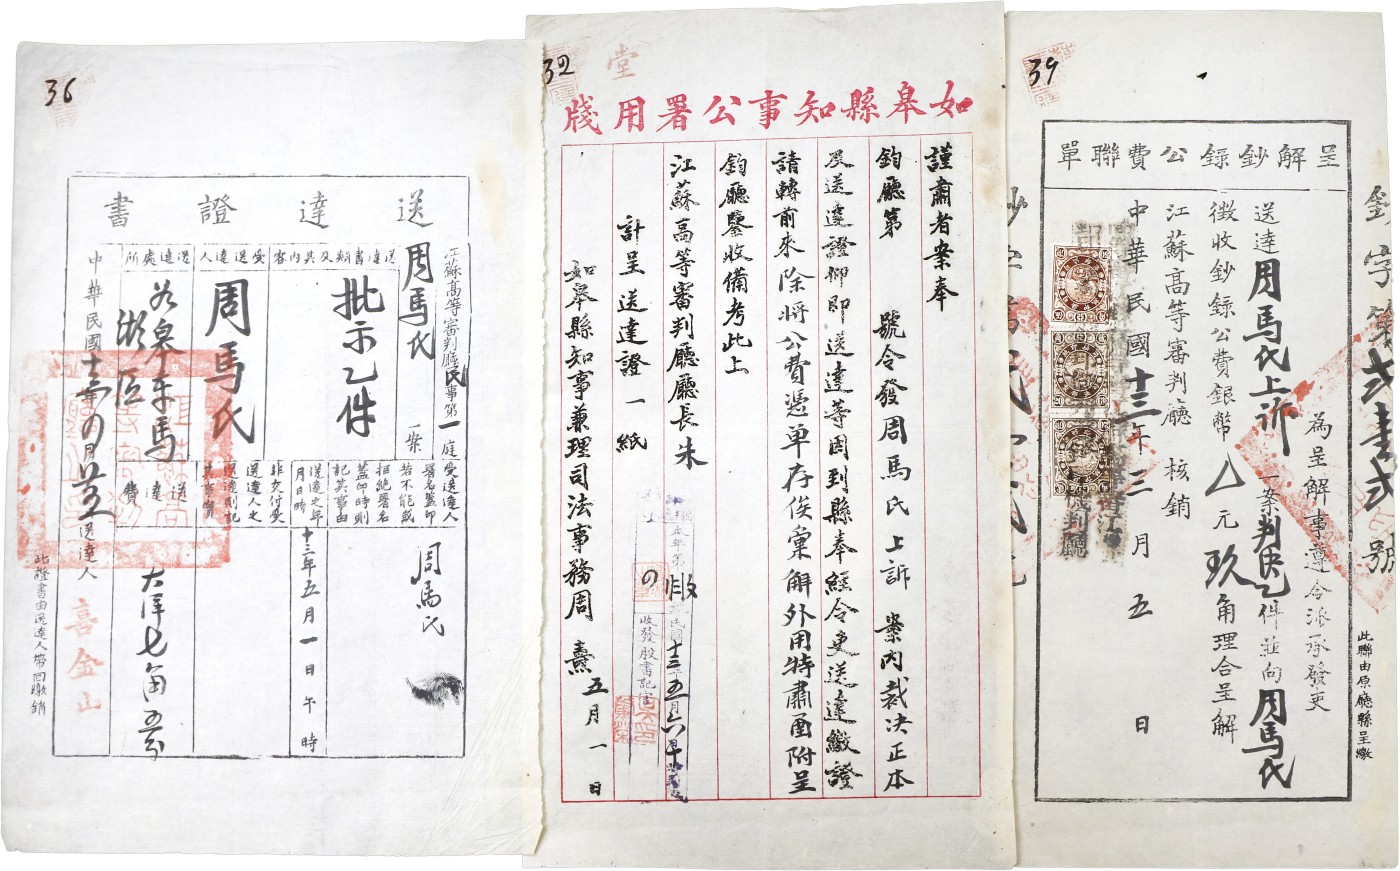 39
鈔字第弍壹弍號
此聯由原廳縣呈繳
呈解鈔錄公費聯單
為呈解事遵令派承發吏
送達周馬氏上訴一案判決乙件並向周馬氏
徵收鈔錄公費銀幣乙元玖角理合呈解
江蘇高等審判廳 核銷
中華民國十三年三月五日
32
堂
如皋縣知事公署用牋
謹肅者案奉
鈞廳第 號令發周馬氏上訴 案內裁決正本
及送達證仰即送達等因到縣奉經令吏送達繳證
請轉前來除將公費憑單存俟彙解外用特肅函附呈
鈞廳鑒收備考此上
江蘇高等審判廳廳長朱
計呈送達證一紙
如皋縣知事兼理司法事務周燾
五月一日
民國十三年五月六日
收發股書記官
36
送達證書
江蘇高等審判廳民事第一庭
周馬氏 一案
送達書類及其內容
批示乙件
受送達人
周馬氏
送達處所
如皋東馬
湖區
受送達人署名蓋印若不能或拒絕署名蓋印時則記其事由
周馬氏
送達之年月日時
十三年五月一日午時
非交付受送達人之送達則記其事實
送達費
大洋七角五分
中華民國十三年四月廿五 送達人 喜金山
此證書由送達人帶回繳銷